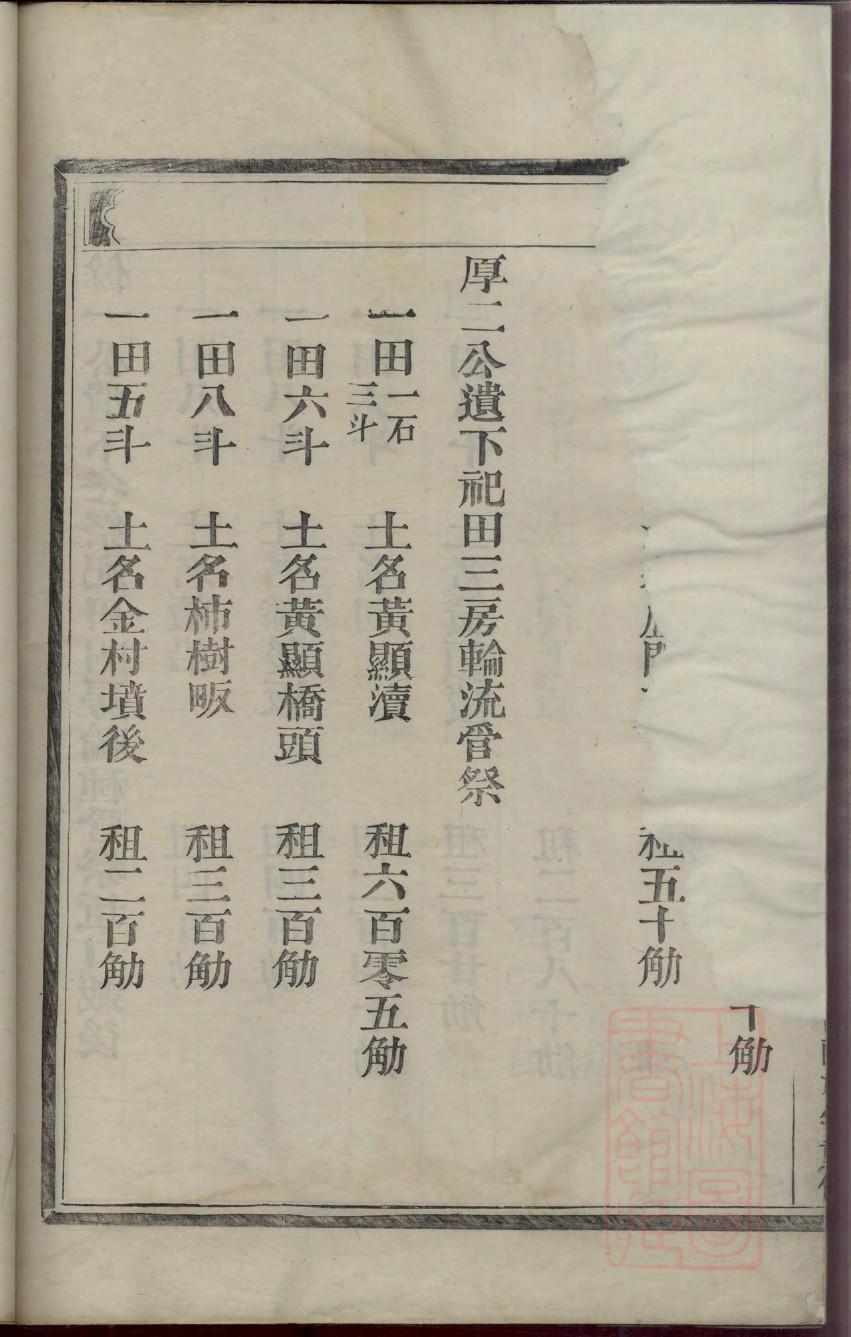 十觔
租五十觔
厚二公遺下祀田三房輪流管祭
一田一石三斗　土名黃顯瀆　租六百零五觔
一田六斗　土名黃顯橋頭　租三百觔
一田八斗　土名柿樹畈　租三百觔
一田五斗　土名金村墳後　租二百觔
上海圖書館藏